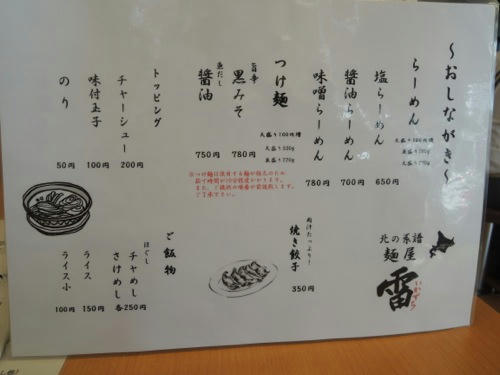 ～おしながき～
らーめん
塩らーめん 650円
醤油らーめん 700円
味噌らーめん 780円
つけ麺
旨辛
黒みそ 780円
魚だし
醤油 750円
トッピング
チャーシュー 200円
味付玉子 100円
のり 50円
北の系譜
麺屋
雷
いかずち
肉汁たっぷり!
焼き餃子 350円
ご飯物
ほぐし
チャめし
さけめし 各250円
ライス 150円
ライス小 100円